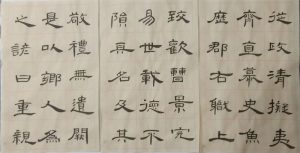 敬禮無遺闕
是以鄉人為
之諺曰重親
致歡曹景完
易世載德不
隕其名及其
從政清擬夷
齊直慕史魚
歷郡右職上